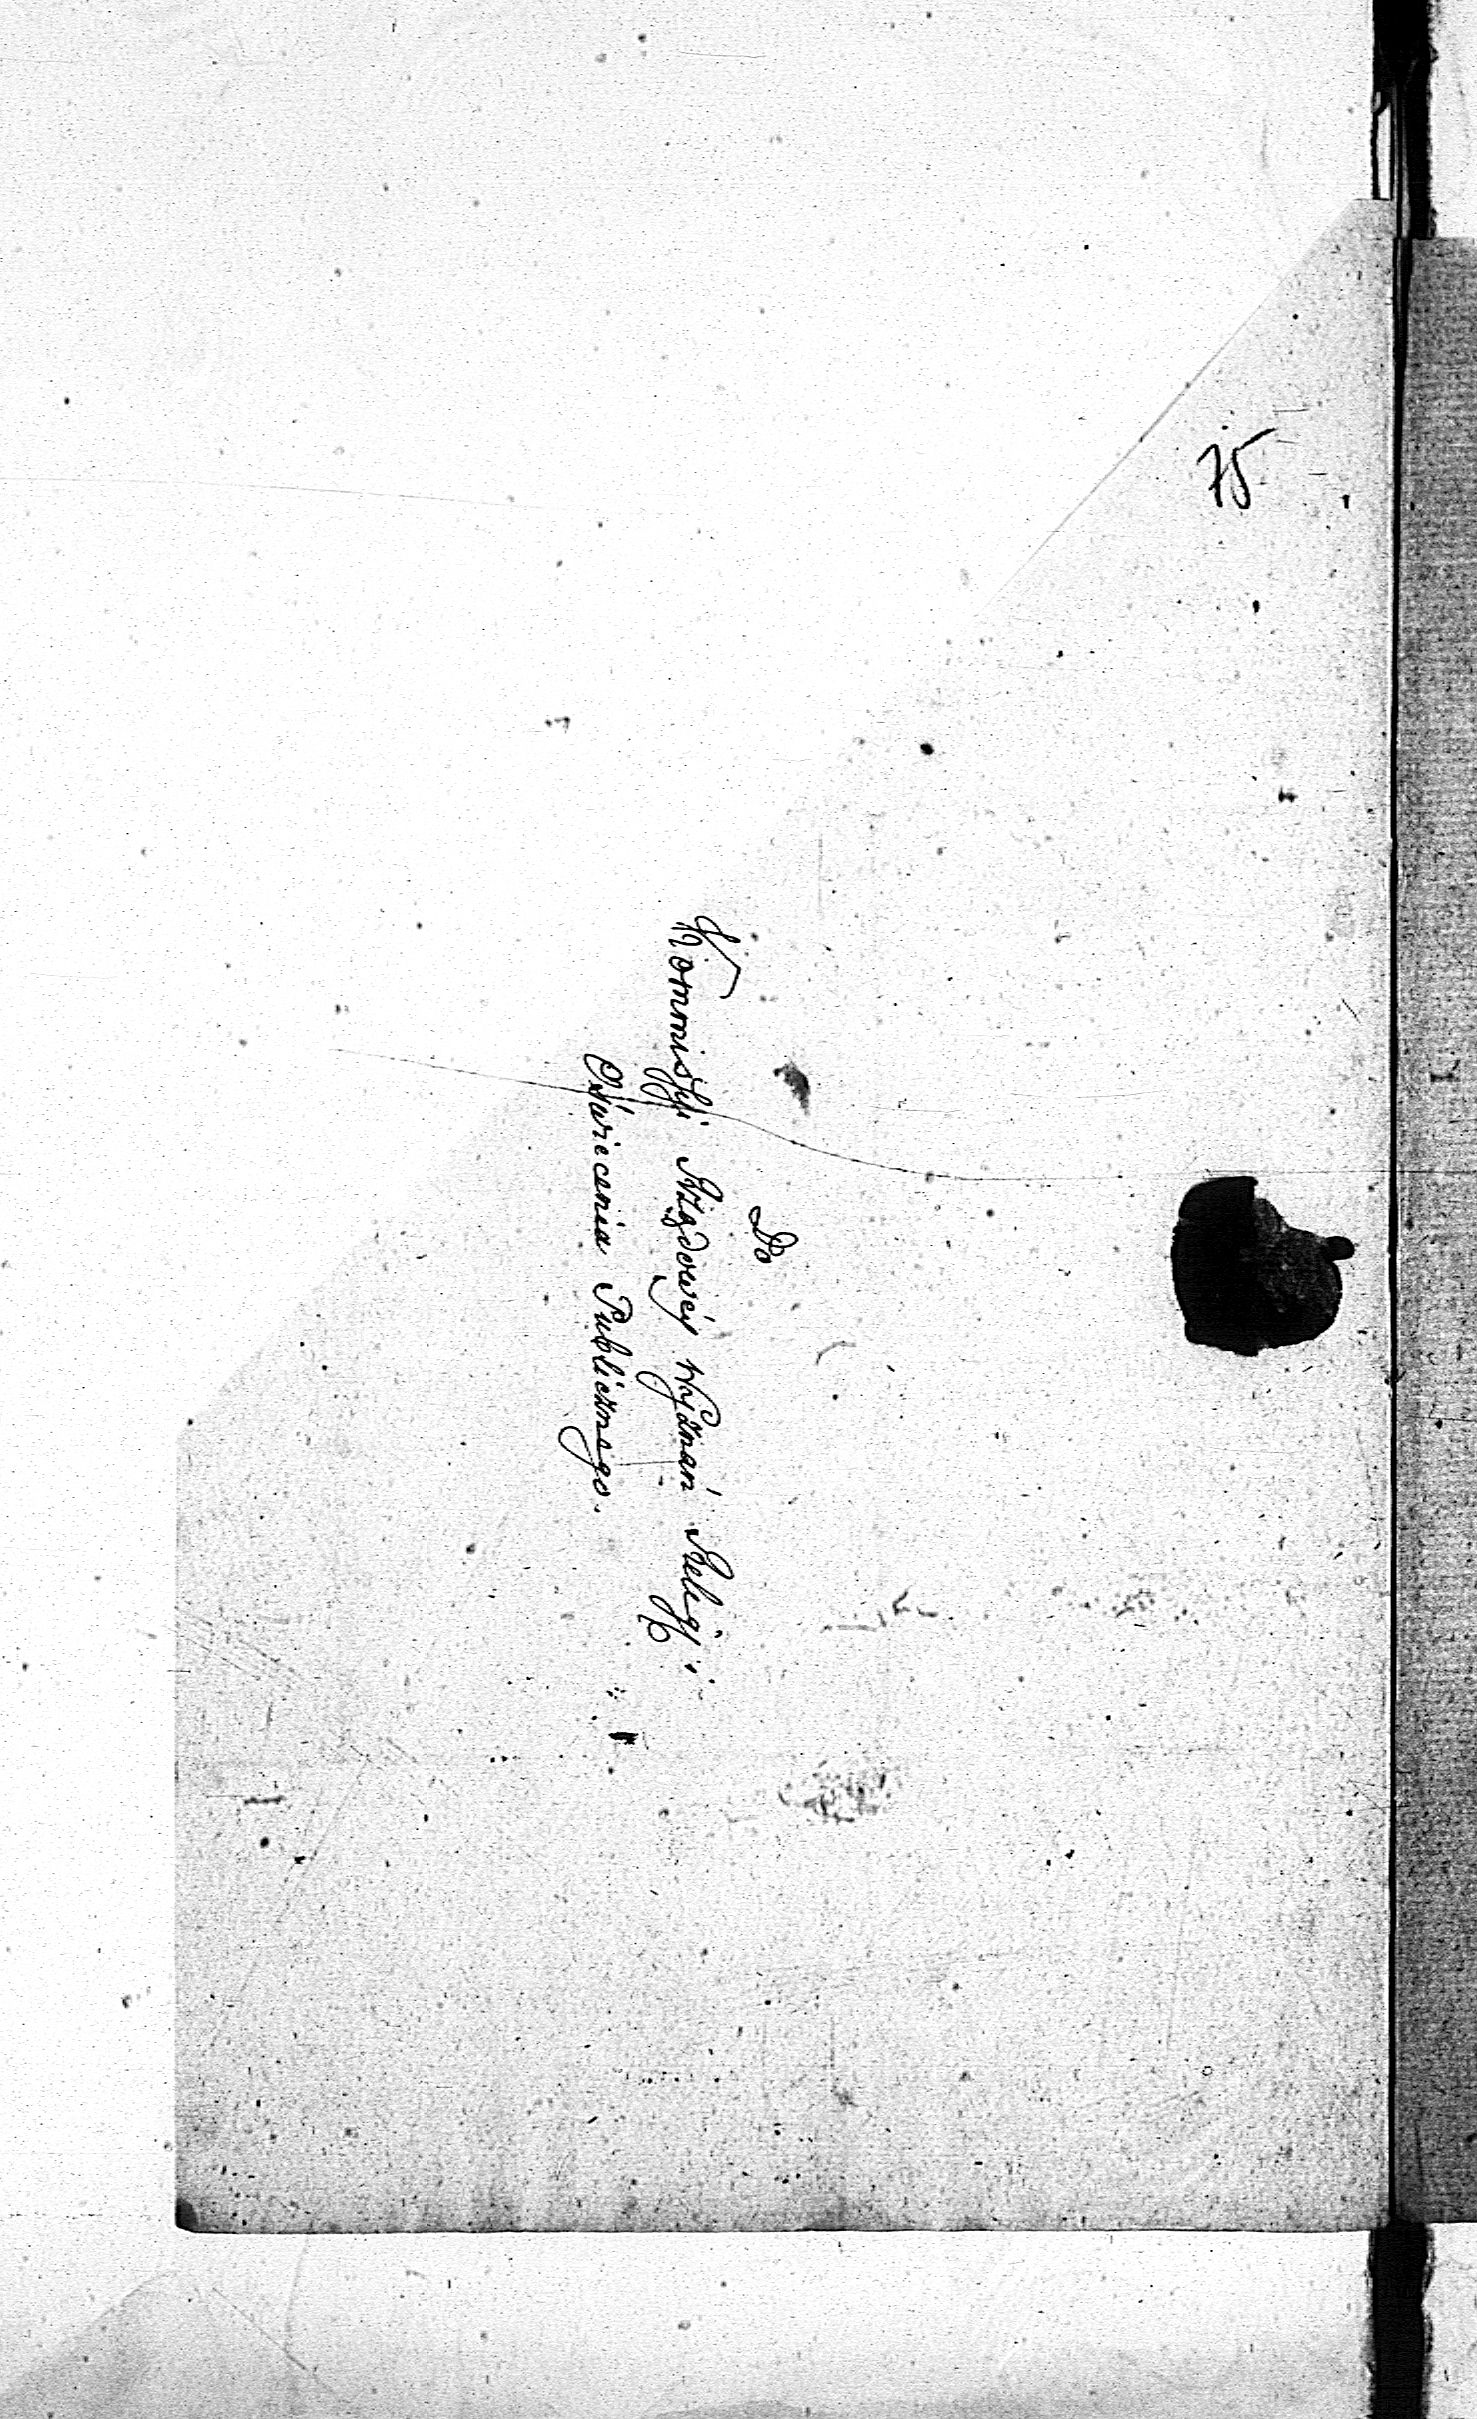 75
Do
Kommissyi Rządowéy Wyznań Religy:
Oświecenia Publicznego.